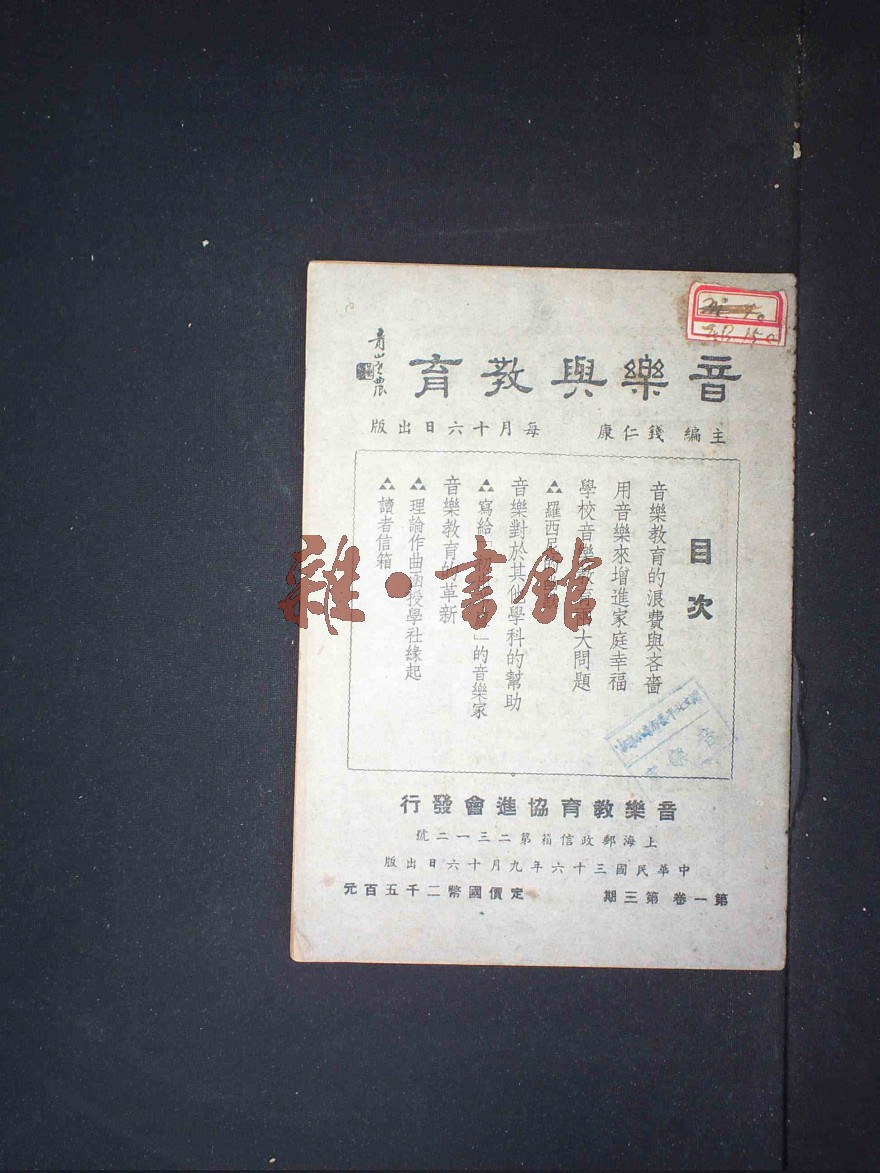 音樂與教育
青山農
主編 錢仁康 每月十六日出版
目次
音樂教育的浪費與吝嗇
用音樂來增進家庭幸福
學校音樂教育大問題
羅西尼
音樂對於其他學科的幫助
寫給「 」的音樂家
音樂教育的革新
理論作曲函授學社緣起
讀者信箱
雜·書館
音樂教育協進會發行
上海郵政信箱第二三一二號
中華民國三十六年九月十六日出版
第一卷 第三期 定價國幣二千五百元